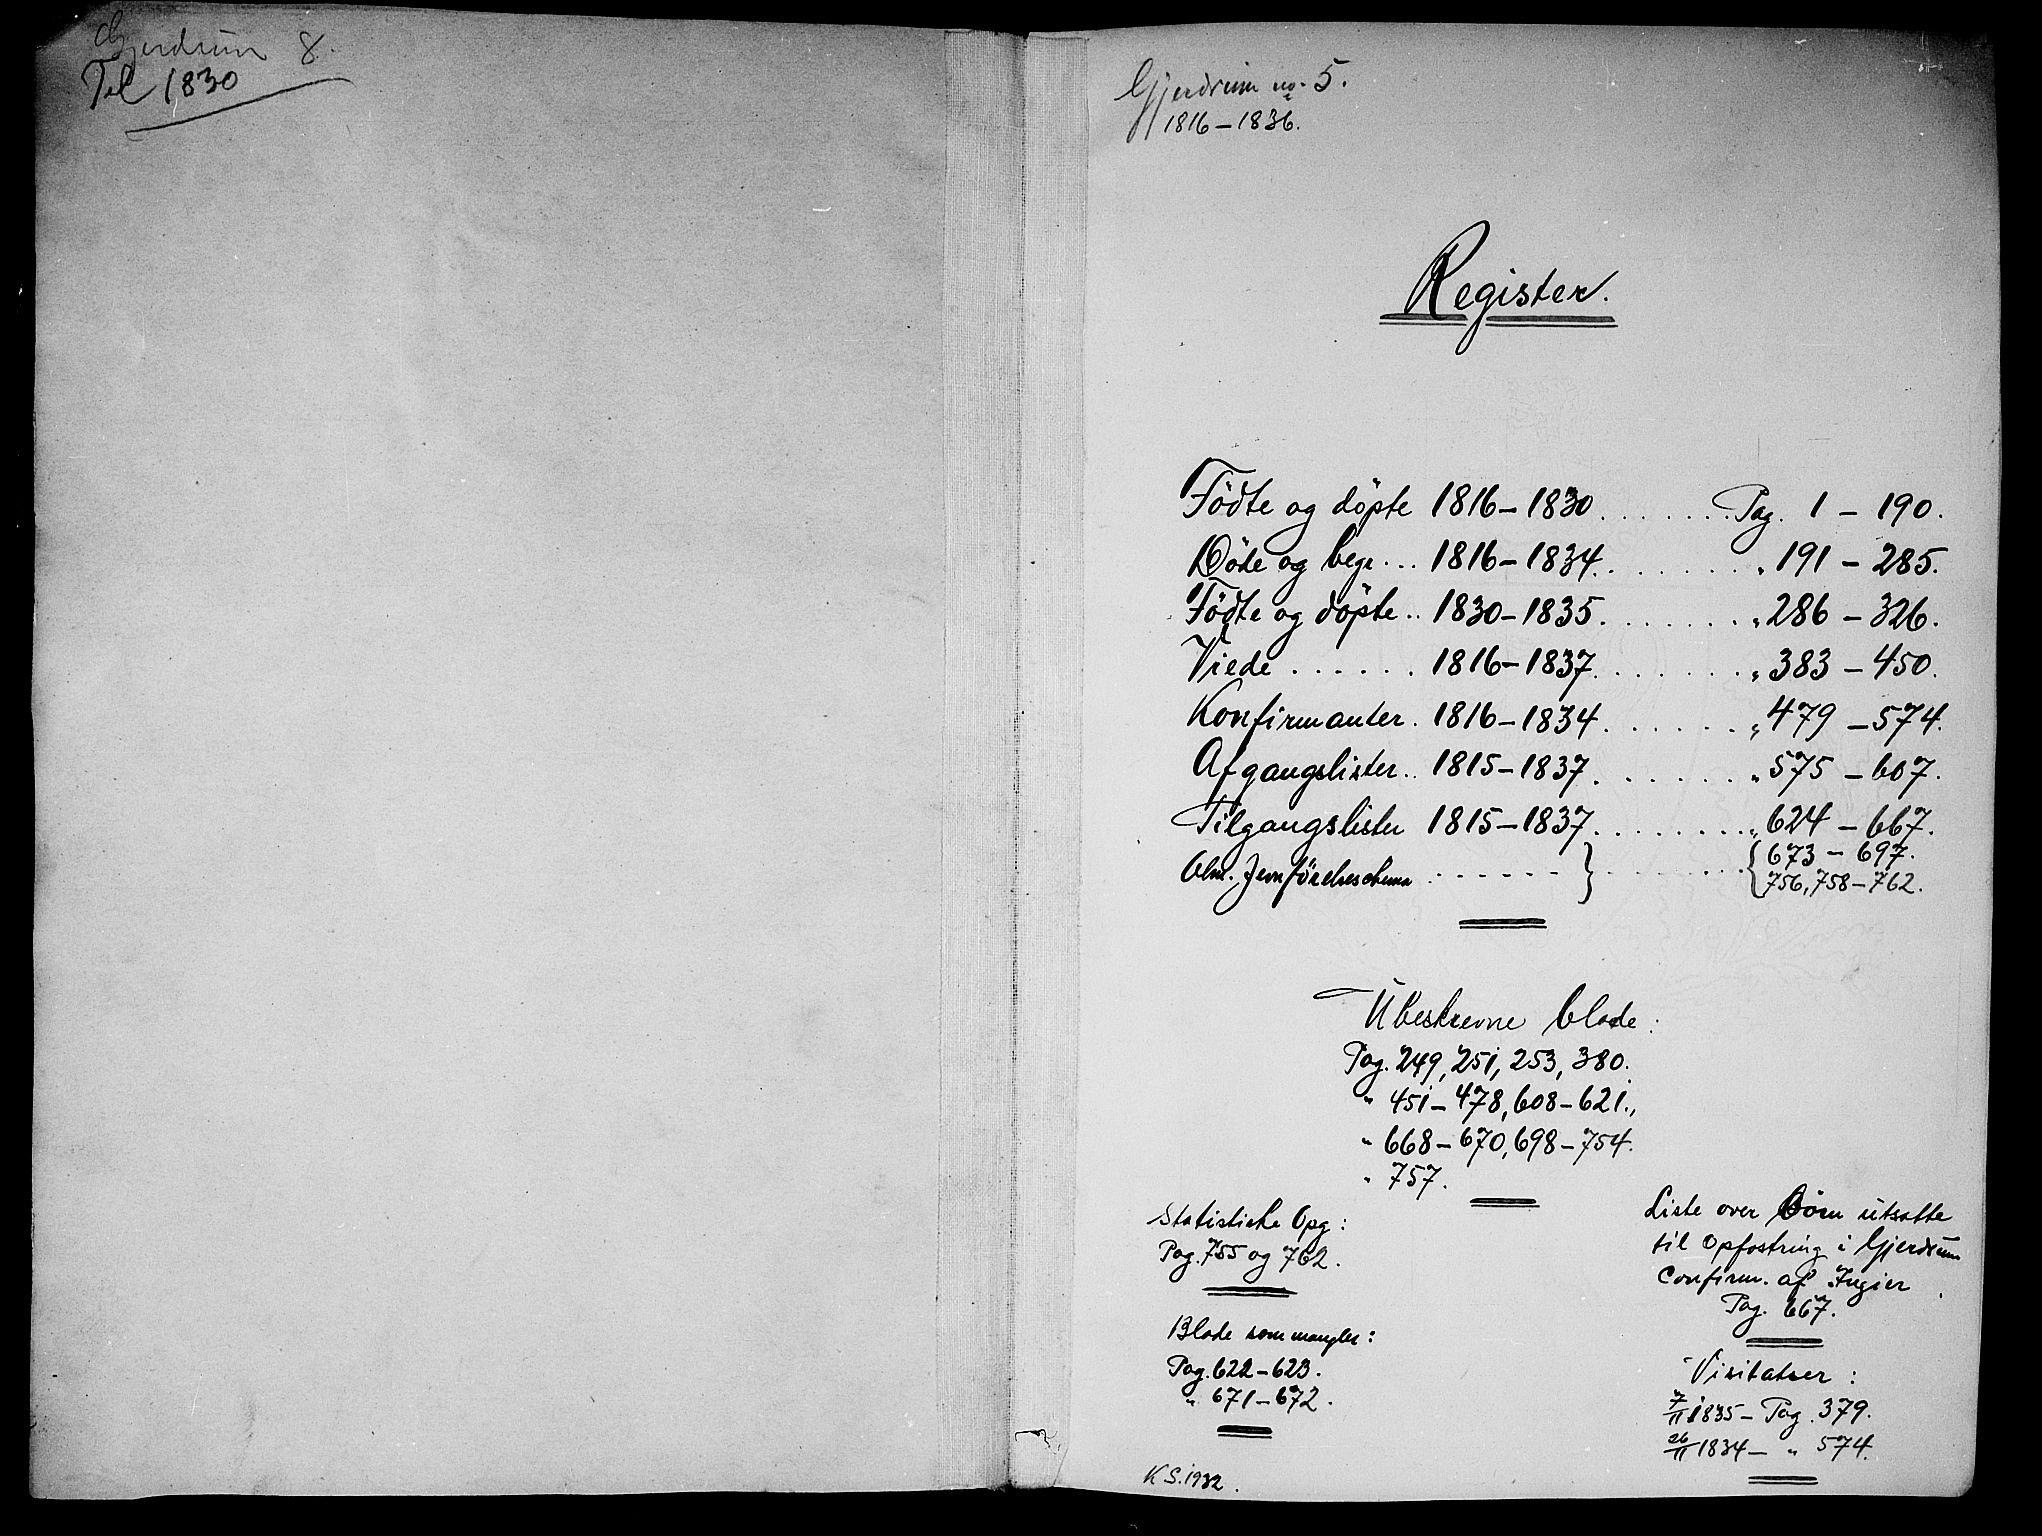 Gjerdrum 8.
Til 1830
Gjerdrum no. 5.
1816-1836.
Register.
Födte og döpte 1816-1830 ....... Pag. 1 - 190.
Döde og begr... 1816-1834. ....... " 191 - 285.
Födte og döpte.. 1830-1835. ....... " 286 - 326.
Viede ...... 1816-1837. ....... " 383 - 450.
Konfirmanter. 1816-1834. ...... " 479 - 574.
Afgangslister.. 1815-1837. ...... " 575 - 607.
Tilgangslister 1815-1837. ....... " 624 - 667.
Alm. Jevnförelsesschema ...... } ....... { 673 - 697.
756, 758 - 762.
Ubeskrevne blade:
Pag. 249, 251, 253, 380.
" 451 - 478, 608 - 621.,
" 668 - 670, 698 - 754.
" 757.
Statistiske Opg:
Pag. 755 og 762.
Blade som mangler:
Pag. 622 - 623.
" 671 - 672.
K S. 1932.
Liste over Börn utsatte
til Opfostring i Gjerdrum
Confirm. af Ingier
Pag. 667.
Visitatser:
7/11 1835 - Pag. 379.
26/11 1834 - " 574.